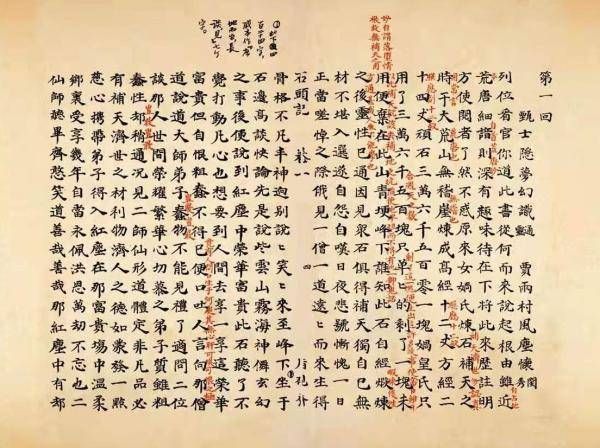 妙自謂落墮情
根故無補天之用
第一回
甄士隱夢幻識通靈　賈雨村風塵懷閨秀
列位看官你道此書從何而來說起根由雖近
荒唐細諳則深有趣味待在下將此來歷註明
方使閱者了然不惑原來女媧氏煉石補天之
時于大荒山無稽崖煉成高經十二丈方經二
十四丈頑石三萬六千五百零一塊媧皇氏只
用了三萬六千五百塊只單々的剩了一塊未
用便棄在此山青埂峰下誰知此石自經煆煉
之後靈性已通因見衆石俱得補天獨自己無
材不堪入選遂自怨自嘆日夜悲號慚愧一日
正當嗟悼之際俄見一僧一道遠々而來生得
石頭記　卷一　四
骨格不凡丰神迥別說々笑々來至峰下坐于
石邊高談快論先是說些雲山霧海神僊玄幻
之事後便說到紅塵中榮華富貴此石聽了不
覺打動凡心也想要到人間去享一享這榮華
富貴但自恨粗蠢不得已便口吐人言向那僧
道說道大師弟子蠢物不能見禮了適問二位
談那人世間榮耀繁華心切慕之弟子質雖粗
蠢性却稍通况見二師仙形道體定非凡品必
有補天濟世之材利物濟人之德如蒙發一點
慈心携帶弟子得入紅塵在那富貴場中溫柔
鄉裏受享幾年自當永佩洪恩萬劫不忘也二
仙師聽畢齊憨笑道善哉善哉那紅塵中有却